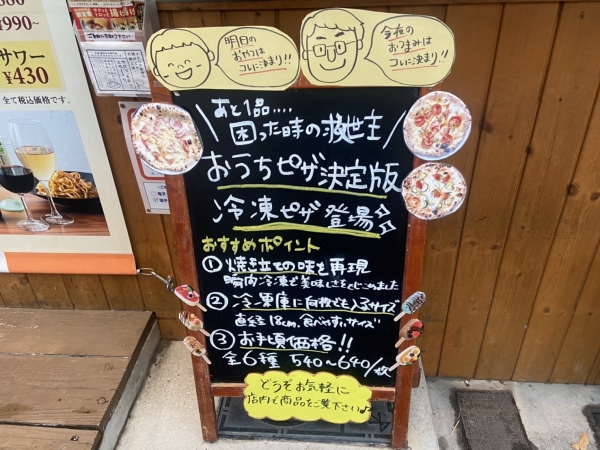 ~990~
サワー
¥430
全て税込価格です。
明日の
おやつは
コレに決まり!!
今夜の
おつまみは
コレに決まり!!
あと1品....
困った時の救世主
おうちピザ決定版
冷凍ピザ登場
おすすめポイント
① 焼き立ての味を再現
瞬内冷凍で美味しさをとじこめました
② 冷凍庫に何枚でも入るサイズ
直径18cm、食べやすいサイズ
③ お手頃価格!!
全6種 540~640/枚
どうぞお気軽に
店内で商品をご覧下さい♪